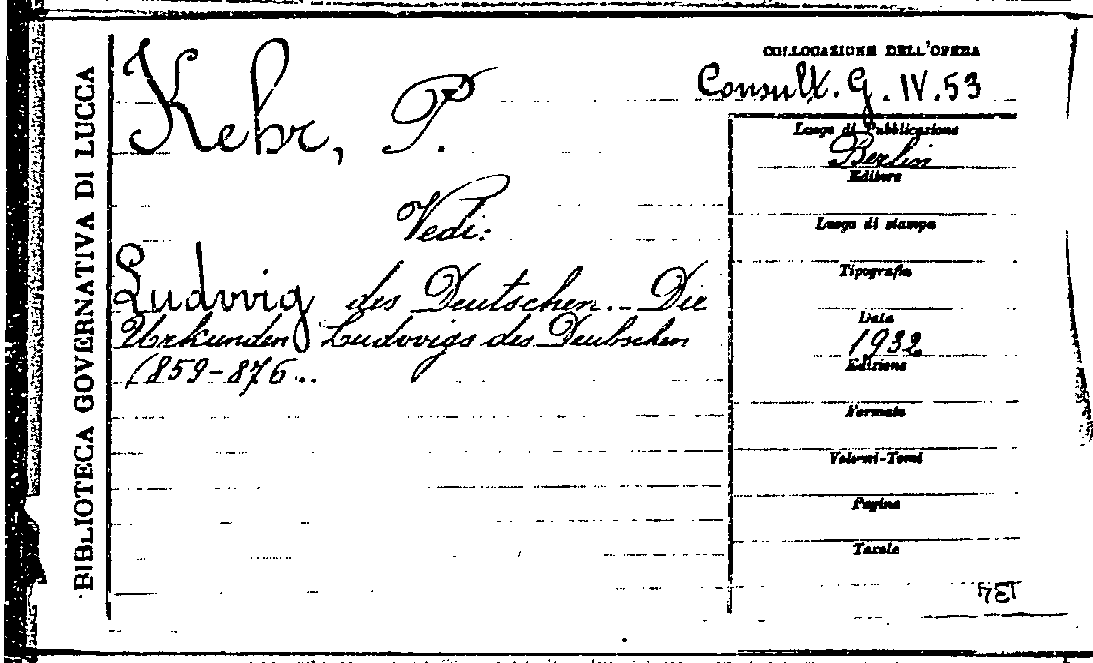 BIBLIOTECA GOVERNATIVA DI LUCCA
Kehr, P.
Vedi:
Ludwig des Deutschen.- Die
Urkunden Ludwigs des Deutschen
(859-876...
COLLOCAZIONE DELL'OPERA
Consult. G. IV. 53
Luogo di Pubblicazione
Berlin
Editore
Luogo di stampa
Tipografia
Data
1932
Edizione
Formato
Volumi-Tomi
Pagine
Tavole